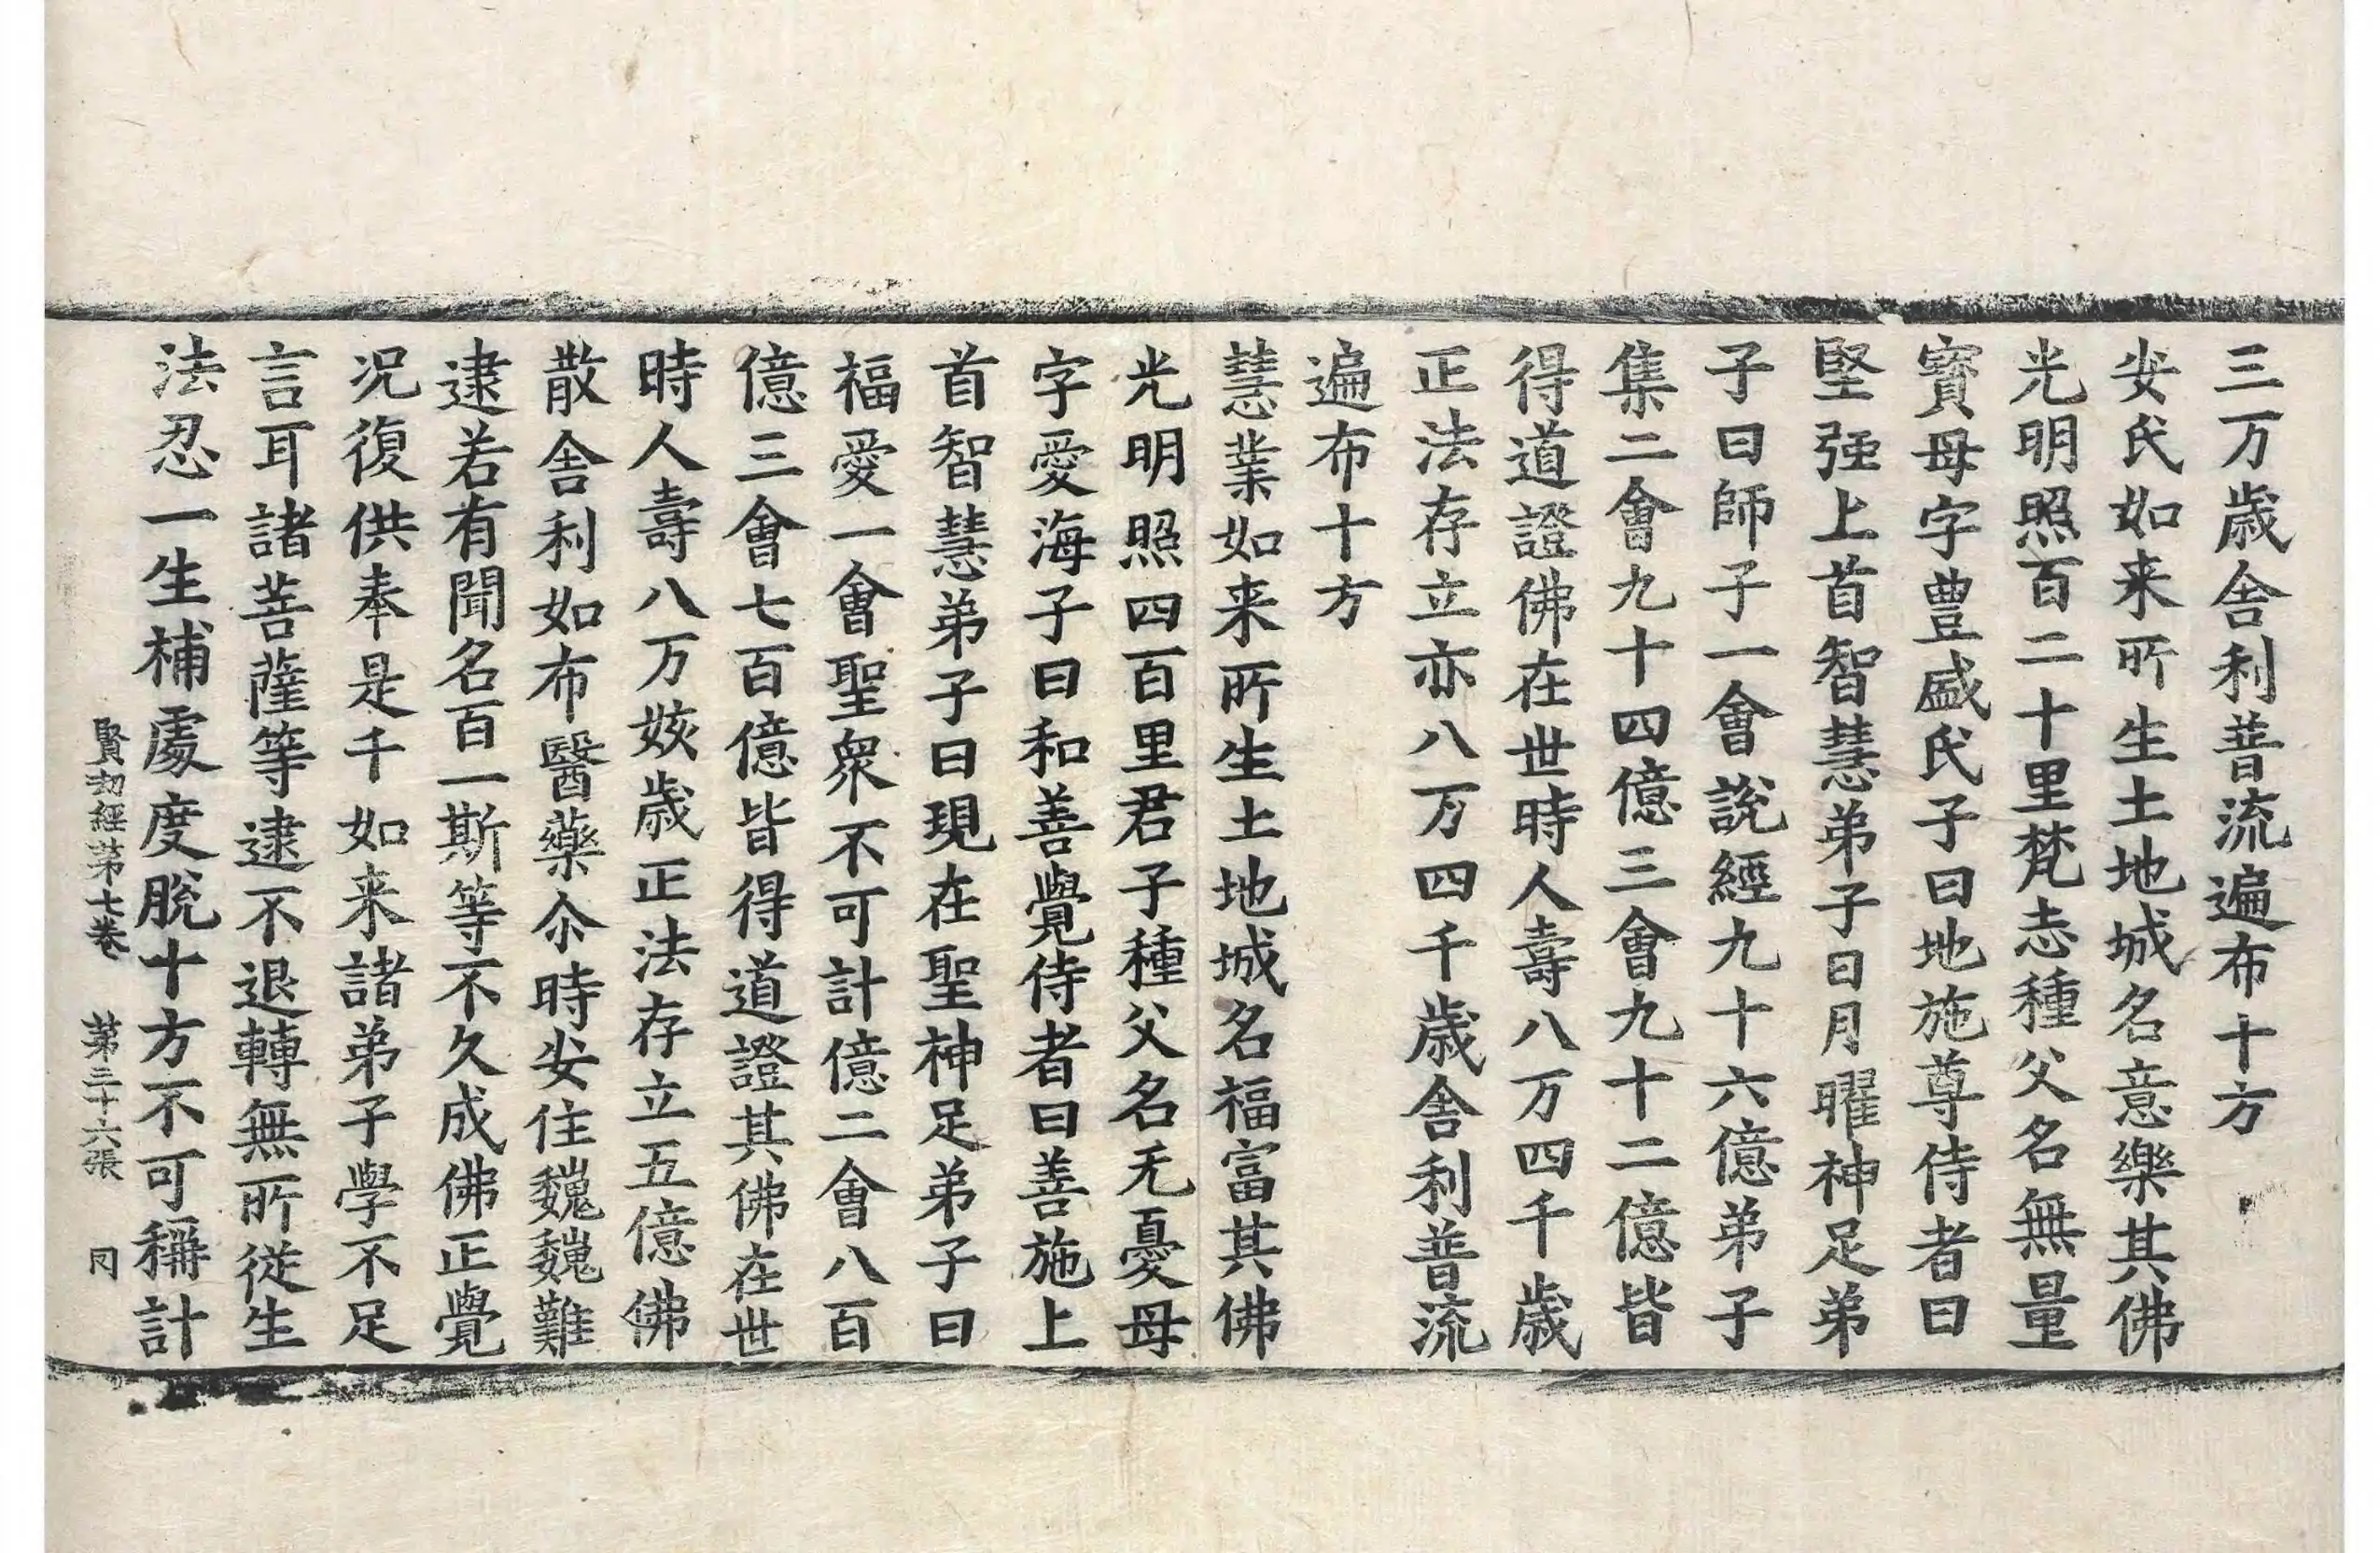 三万歳舎利普流遍布十方
安氏如来所生土地城名意樂其佛
光明照百二十里梵志種父名無量
寳母字豊盛氏子曰地施尊侍者曰
堅强上首智慧弟子日月曜神足弟
子曰師子一會說經九十六億弟子
集二會九十四億三會九十二億皆
得道證佛在世時人壽八万四千歳
正法存立亦八万四千歳舎利普流
遍布十方
慧業如来所生土地城名福富其佛
光明照四百里君子種父名无憂母
字愛海子曰和善覺侍者曰善施上
首智慧弟子曰現在聖神足弟子曰
福愛一會聖衆不可計億二會八百
億三會七百億皆得道證其佛在世
時人壽八万姟歳正法存立五億佛
散舎利如布醫藥尒時安住巍巍難
逮若有聞名百一斯等不久成佛正覺
況復供奉是千如来諸弟子學不足
言耳諸菩薩等逮不退轉無所從生
法忍一生補處度脫十方不可稱計
賢劫經第七卷 第三十六張 同